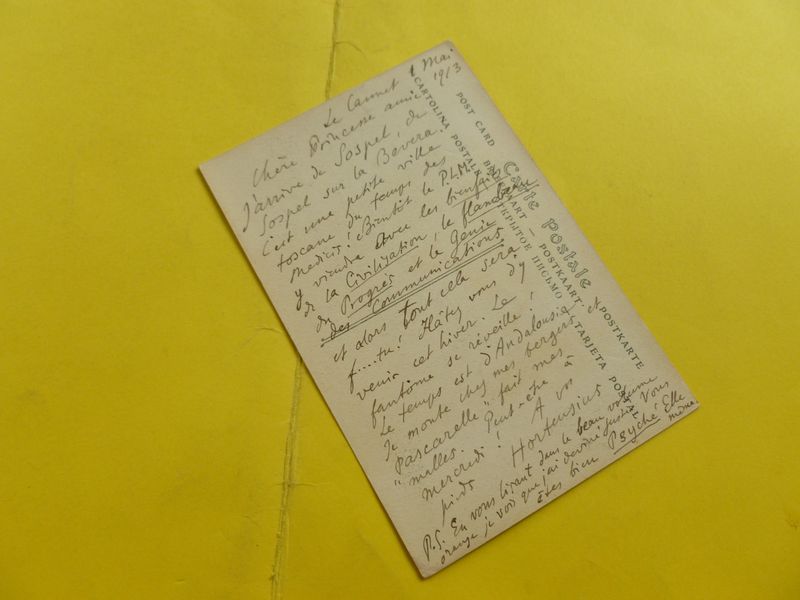 Le Cannet 1 Mai
1913
Chère Princesse amie
J'arrive de Sospel, de
Sospel sur la Bevera.
C'est une petite ville
toscane du temps des
Medicis! Bientôt le P.L.M.
y viendra avec les bienfaits
de la Civilization, le flambeau
du Progrès et le Génie
des Communications
et alors tout cela sera
f....tu! Hâtez vous d'y
venir cet hiver. Le
fantôme se réveille!
Le temps est d'Andalousie
Je monte chez mes bergers et
Pascarelle "fait mes
"malles. Peut-être à
mercredi! A vos
pieds Hortensius
P.S. En vous lisant dans le beau volume
orange je vois que j'ai deviné juste. Vous
êtes bien Psyché Elle
même.
Carte postale
POST CARD
CARTOLINA POSTALE
POSTKAART
POSTKARTE
ОТКРЫТОЕ ПИСЬМО
TARJETA POSTAL